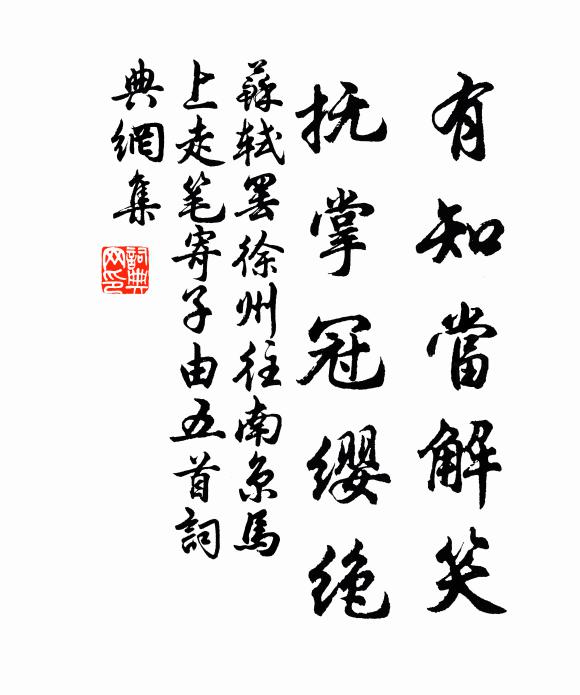 有知當解笑
抚掌冠缨绝
蘇軾罢徐州往南京馬
上走笔寄子由五首詞
典網集
詞典
网印